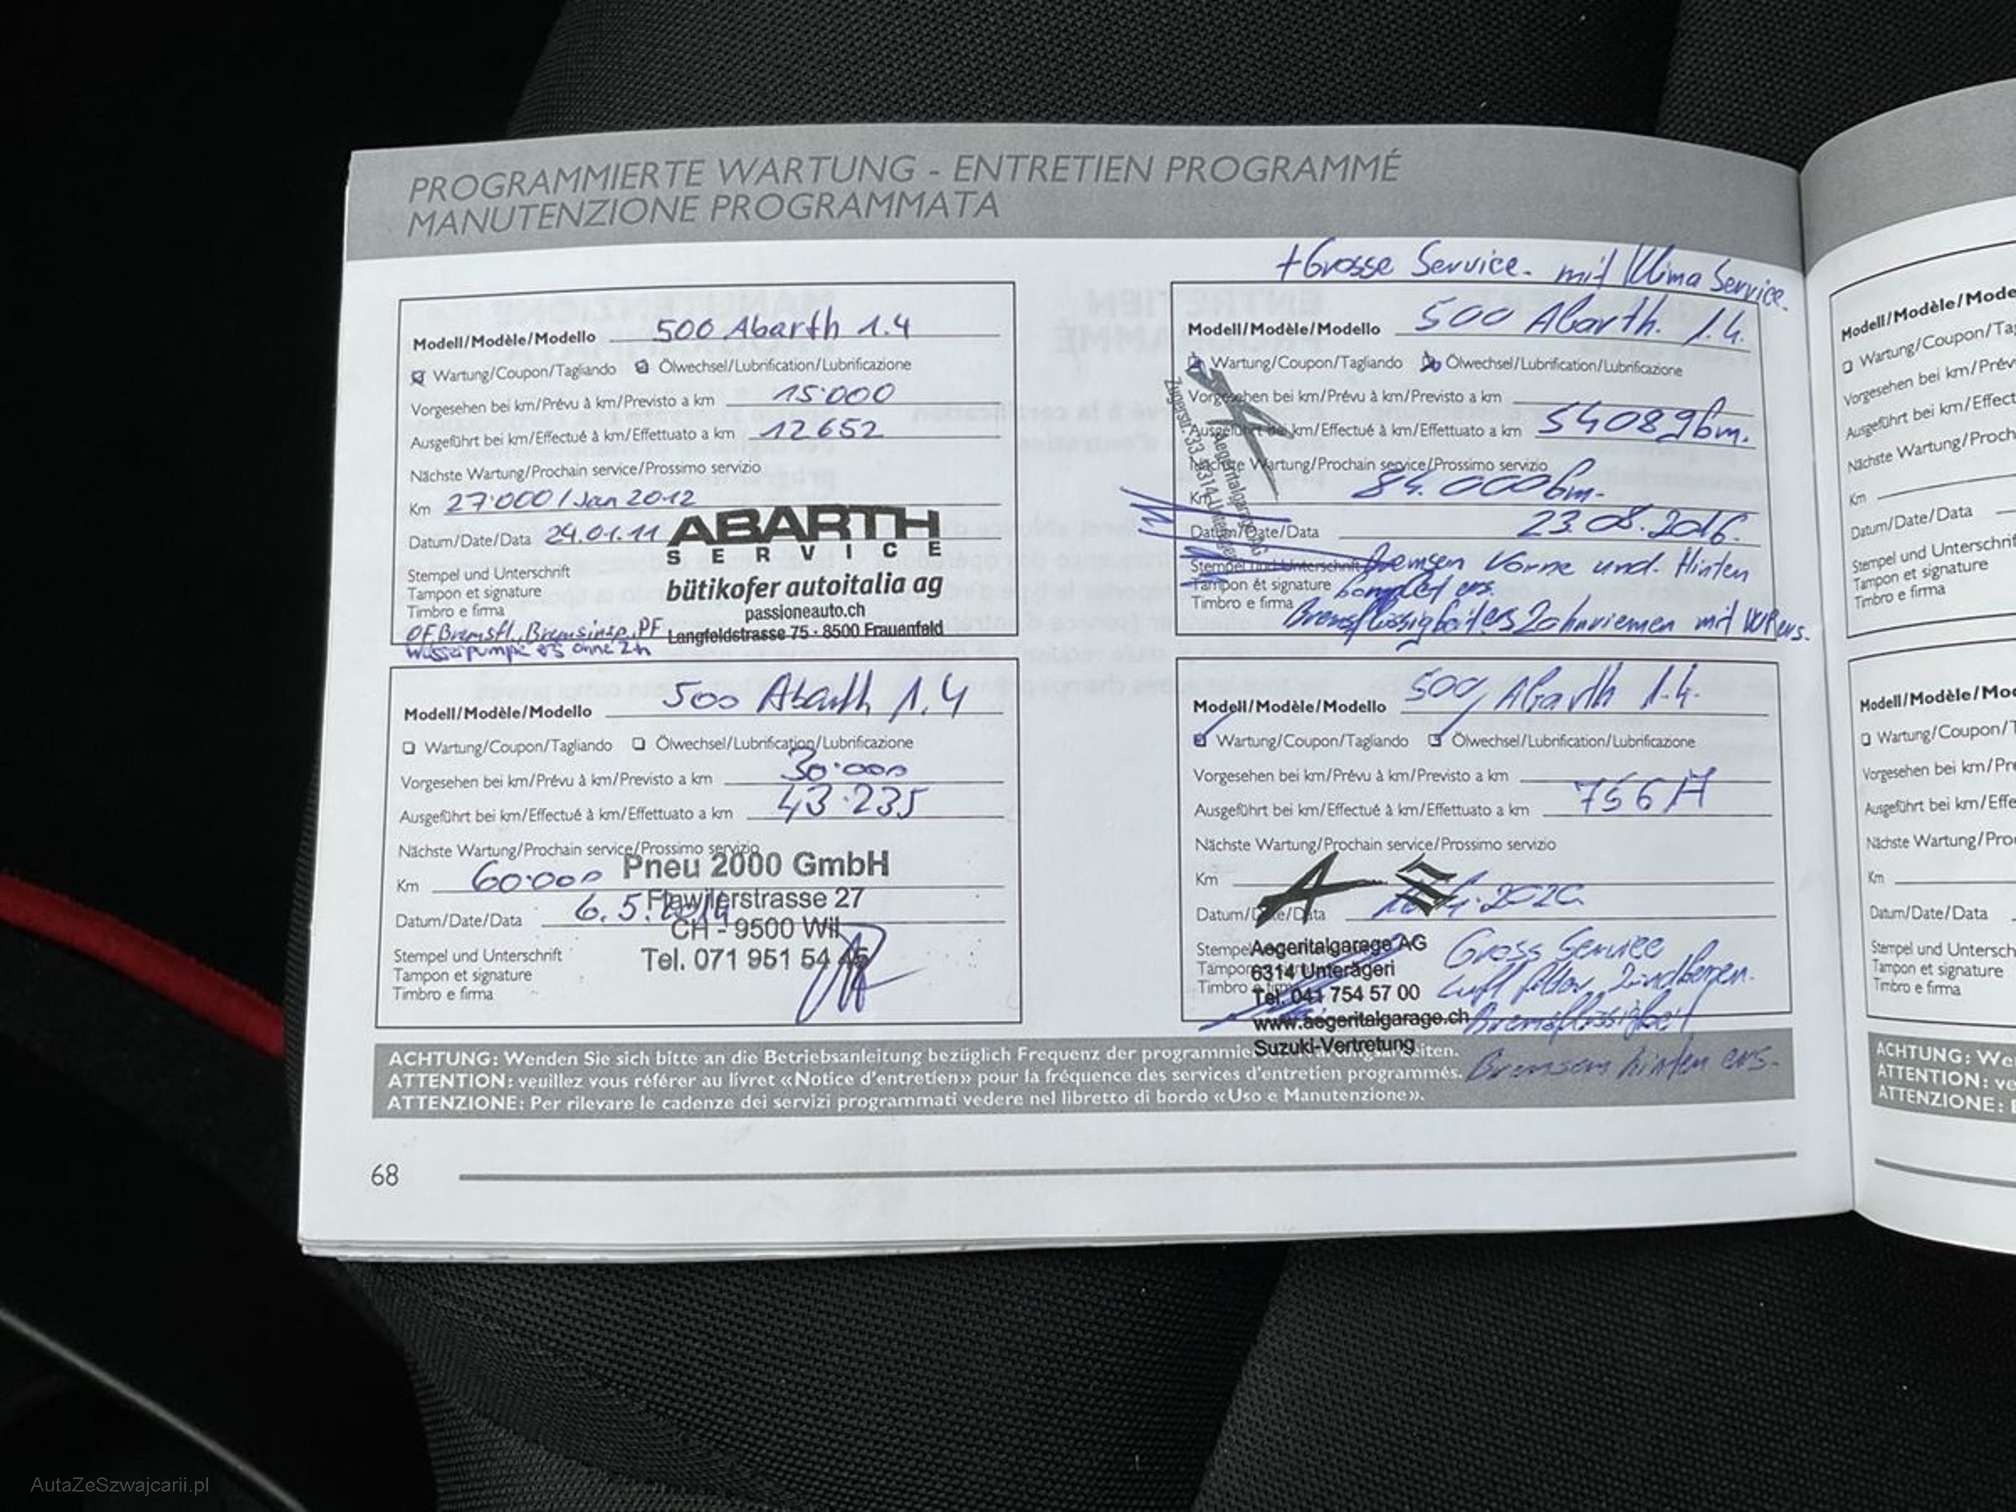 PROGRAMMIERTE WARTUNG - ENTRETIEN PROGRAMMÉ
MANUTENZIONE PROGRAMMATA
Modell/Modèle/Modello 500 Abarth 1.4
Wartung/Coupon/Tagliando Ölwechsel/Lubrification/Lubrificazione
Vorgesehen bei km/Prévu à km/Previsto a km 15'000
Ausgeführt bei km/Effectué à km/Effettuato a km 12652
Nächste Wartung/Prochain service/Prossimo servizio
Km 27'000 / Jan 2012
Datum/Date/Data 24.01.11
ABARTH
SERVICE
bütikofer autoitalia ag
passioneauto.ch
Langfeldstrasse 75 - 8500 Frauenfeld
Stempel und Unterschrift
Tampon et signature
Timbro e firma
OF, Bremsfl., Bremsinsp, PF
Wasserpumpe es ohne Zh
Modell/Modèle/Modello 500 Abarth 1.4
Wartung/Coupon/Tagliando Ölwechsel/Lubrification/Lubrificazione
Vorgesehen bei km/Prévu à km/Previsto a km 30'000
Ausgeführt bei km/Effectué à km/Effettuato a km 43'235
Nächste Wartung/Prochain service/Prossimo servizio
Km 60'000
Datum/Date/Data 6.5.2014
Pneu 2000 GmbH
Flawilerstrasse 27
CH - 9500 Wil
Tel. 071 951 54 45
Stempel und Unterschrift
Tampon et signature
Timbro e firma
+Grosse Service. mit Klima Service.
Modell/Modèle/Modello 500 Abarth. 1.4.
Wartung/Coupon/Tagliando Ölwechsel/Lubrification/Lubrificazione
Vorgesehen bei km/Prévu à km/Previsto a km
Ausgeführt bei km/Effectué à km/Effettuato a km 54089km.
Nächste Wartung/Prochain service/Prossimo servizio
Km 84.000km.
Datum/Date/Data 23.08.2016.
Stempel und Unterschrift Bremsen Vorne und Hinten
Tampon et signature komplet ers.
Timbro e firma Bremsflüssigkeit ers Zahnriemen mit WP ers.
Aegeritalgarage AG
Zugerstr. 33, 6314 Unterägeri
Modell/Modèle/Modello 500 Abarth 1.4.
Wartung/Coupon/Tagliando Ölwechsel/Lubrification/Lubrificazione
Vorgesehen bei km/Prévu à km/Previsto a km
Ausgeführt bei km/Effectué à km/Effettuato a km
Nächste Wartung/Prochain service/Prossimo servizio
Km
Datum/Date/Data 2020
Aegeritalgarage AG
6314 Unterägeri
Tel. 041 754 57 00
www.aegeritalgarage.ch
Suzuki-Vertretung
Gross Service
Luft filter, Zündkerzen.
Bremsflüssigkeit
Bremsen hinten ers.
ACHTUNG: Wenden Sie sich bitte an die Betriebsanleitung bezüglich Frequenz der
ATTENTION: veuillez vous référer au livret «Notice d'entretien» pour la fréquence des services d'entretien programmés.
ATTENZIONE: Per rilevare le cadenze dei servizi programmati vedere nel libretto di bordo «Uso e Manutenzione».
68
Modell/Modèle/Mode
Wartung/Coupon/Ta
Vorgesehen bei km/Prév
Ausgeführt bei km/Effect
Nächste Wartung/Proch
Km
Datum/Date/Data
Stempel und Unterschrif
Tampon et signature
Timbro e firma
Modell/Modèle/Mo
Wartung/Coupon/T
Vorgesehen bei km/Pr
Ausgeführt bei km/Effe
Nächste Wartung/Pro
Km
Datum/Date/Data
Stempel und Untersch
Tampon et signature
Timbro e firma
ACHTUNG: We
ATTENTION: ve
ATTENZIONE:
AutaZeSzwajcarii.pl